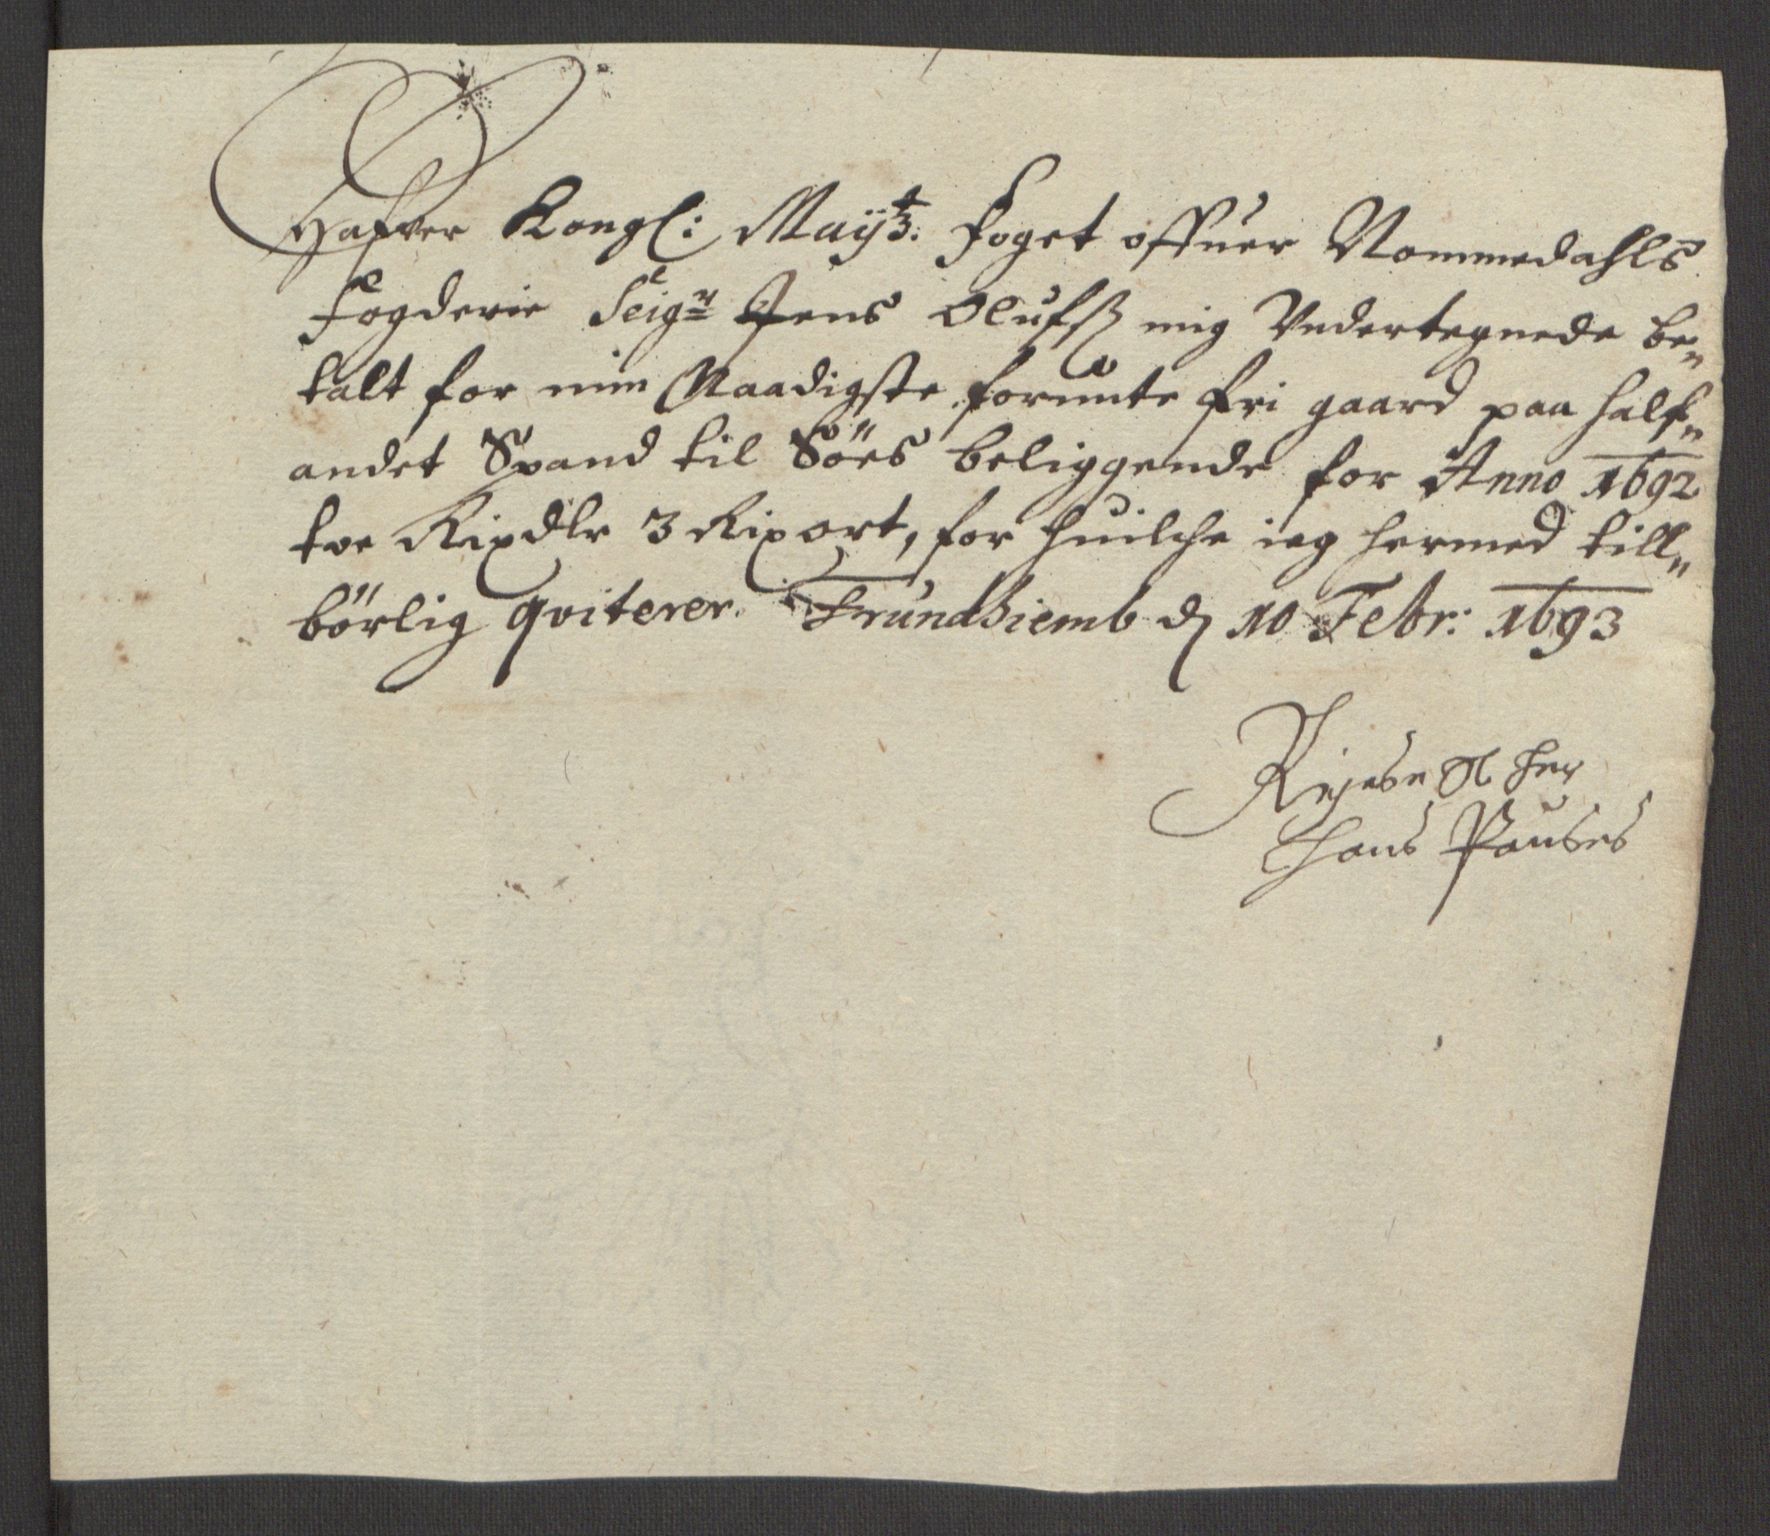 Hafver Kongl: Maÿtz. Foget offuer Nommedahls
Fogderie Seigr Jens Olufsz mig Undertegnede be„
talt for min Naadigste forunte fri gaard paa half„
andet Spand til Söes beliggende for Anno 1692
toe Rixdlr 3 Rixort, for huilche ieg hermed till„
börlig qviterer. Trundhiemb d 10 Febr: 1693
Sl her
Hans Pauses